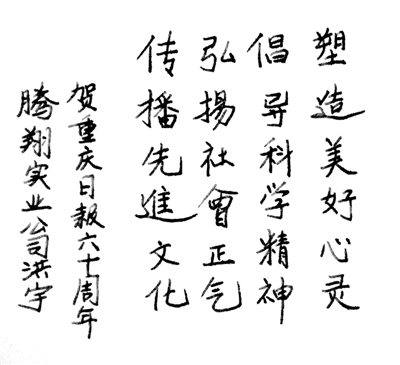 塑造美好心灵
倡导科学精神
弘揚社會正气
传播先進文化
贺重庆日報六十周年
腾翔实业公司洪宇